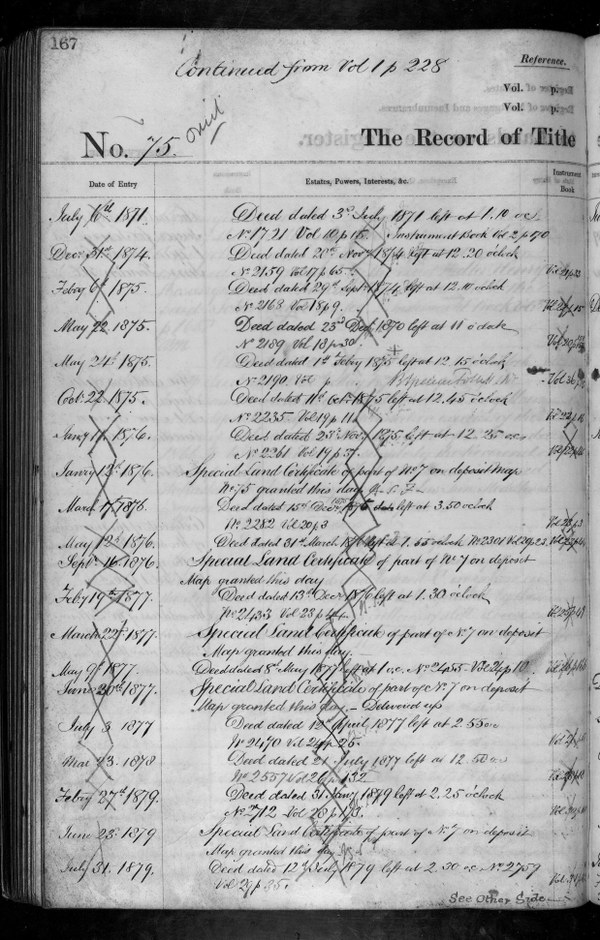 167
Continued from Vol 1 p 228
Reference.
Vol. p.
Vol. p.
No. 75.
The Record of Title
Date of Entry
Estates, Powers, Interests, &c.
Instrument Book
July 6th 1871. Deed dated 3rd July 1871 left at 1.10 oc.
No 1721 Vol 10 p 15. Instrument Book Vol 2 p 170
Decr 31st 1874. Deed dated 20th Novr 1874 left at 12.20 o'clock
No 2159 Vol 17 p 65.
Febry 6th 1875. Deed dated 29th Sept 1874 left at 12.10 o'clock
No 2168 Vol 18 p 9.
May 22 1875. Deed dated 23rd Decr 1870 left at 11 o'clock
No 2189 Vol 18 p 30.
May 24th 1875. Deed dated 1st Febry 1875 left at 12.15 o'clock
No 2190. Vol p.
Oct. 22 1875. Deed dated 11th Octr 1875 left at 12.45 o'clock
No 2235. Vol 19 p 11.
Deed dated 23rd Novr 1875 left at 12.25 oc.
No 2261 Vol 19 p 37.
Janry 13th 1876. Special Land Certificate of part of No 7 on deposit map
No 75 granted this day
March 17th 1876. Deed dated 15th Decr 1875 left at 3.50 o'clock
No 2282 Vol 20 p 3
May 12th 1876. Deed dated 31st March 1876 left at 1.55 o'clock No 2301 Vol 20 p 22.
Septr 14th 1876. Special Land Certificate of part of No 7 on deposit
Map granted this day
Feby 19th 1877. Deed dated 13th Decr 1876 left at 1.30 o'clock
No 2433 Vol 23 p 44
March 22nd 1877. Special Land Certificate of part of No 7 on deposit
Map granted this day.
May 9th 1877. Deed dated 8th May 1877 left at 1 oc. No 2455 Vol 24 p 10.
June 20th 1877. Special Land Certificate of part of No 7 on deposit
Map granted this day. Delivered up
July 3 1877 Deed dated 12th April 1877 left at 2.55 oc
No 2470 Vol 24 p 25.
Mar 23. 1878 Deed dated 21 July 1877 left at 12.50 oc
No 2557 Vol 26 p 132
Febry 27th 1879. Deed dated 31 Jany 1879 left at 2.25 o'clock
No 2712 Vol 28 p 173.
June 23 1879 Special Land Certificate of part of No 7 on deposit
Map granted this day
July 31. 1879. Deed dated 12th July 1879 left at 2.30 oc No 2759
Vol 29 p 35.
See Other Side